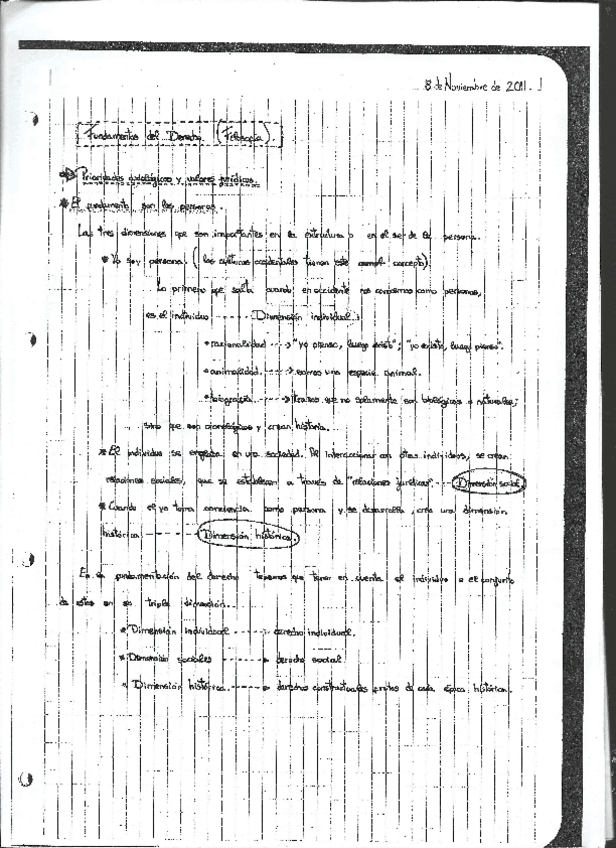 8 de Noviembre de 2011.
Fundamentos del Derecho (Filosofía)
Prioridades axiológicas y valores jurídicos.
* El fundamento son las personas.
Las tres dimensiones que son importantes en la estructura o en el ser de la persona.
* Yo soy persona (las culturas occidentales tienen este concepto)
Lo primero que salta cuando en occidente nos conocemos como personas,
es el individuo Dimensión individual:
* racionalidad ---> "yo pienso, luego existo"; "yo existo, luego pienso".
* animalidad ----> somos una especie animal.
* biografía ----> trazos que no solamente son biológicos o naturales;
sino que son cronológicos y crean historia.
* El individuo se en una sociedad. Al interaccionar con otros individuos, se crean
relaciones sociales, que se establecen a través de "relaciones jurídicas" Dimensión social
* Cuando el yo toma conciencia como persona y se desarrolla, crea una dimensión
histórica Dimensión histórica.
En la fundamentación del derecho tenemos que tener en cuenta el individuo o el conjunto
de estos en su triple dimensión.
* Dimensión individual -----> derecho individual.
* Dimensión sociales -----> derecho social
* Dimensión histórica -----> derechos de cada época histórica.